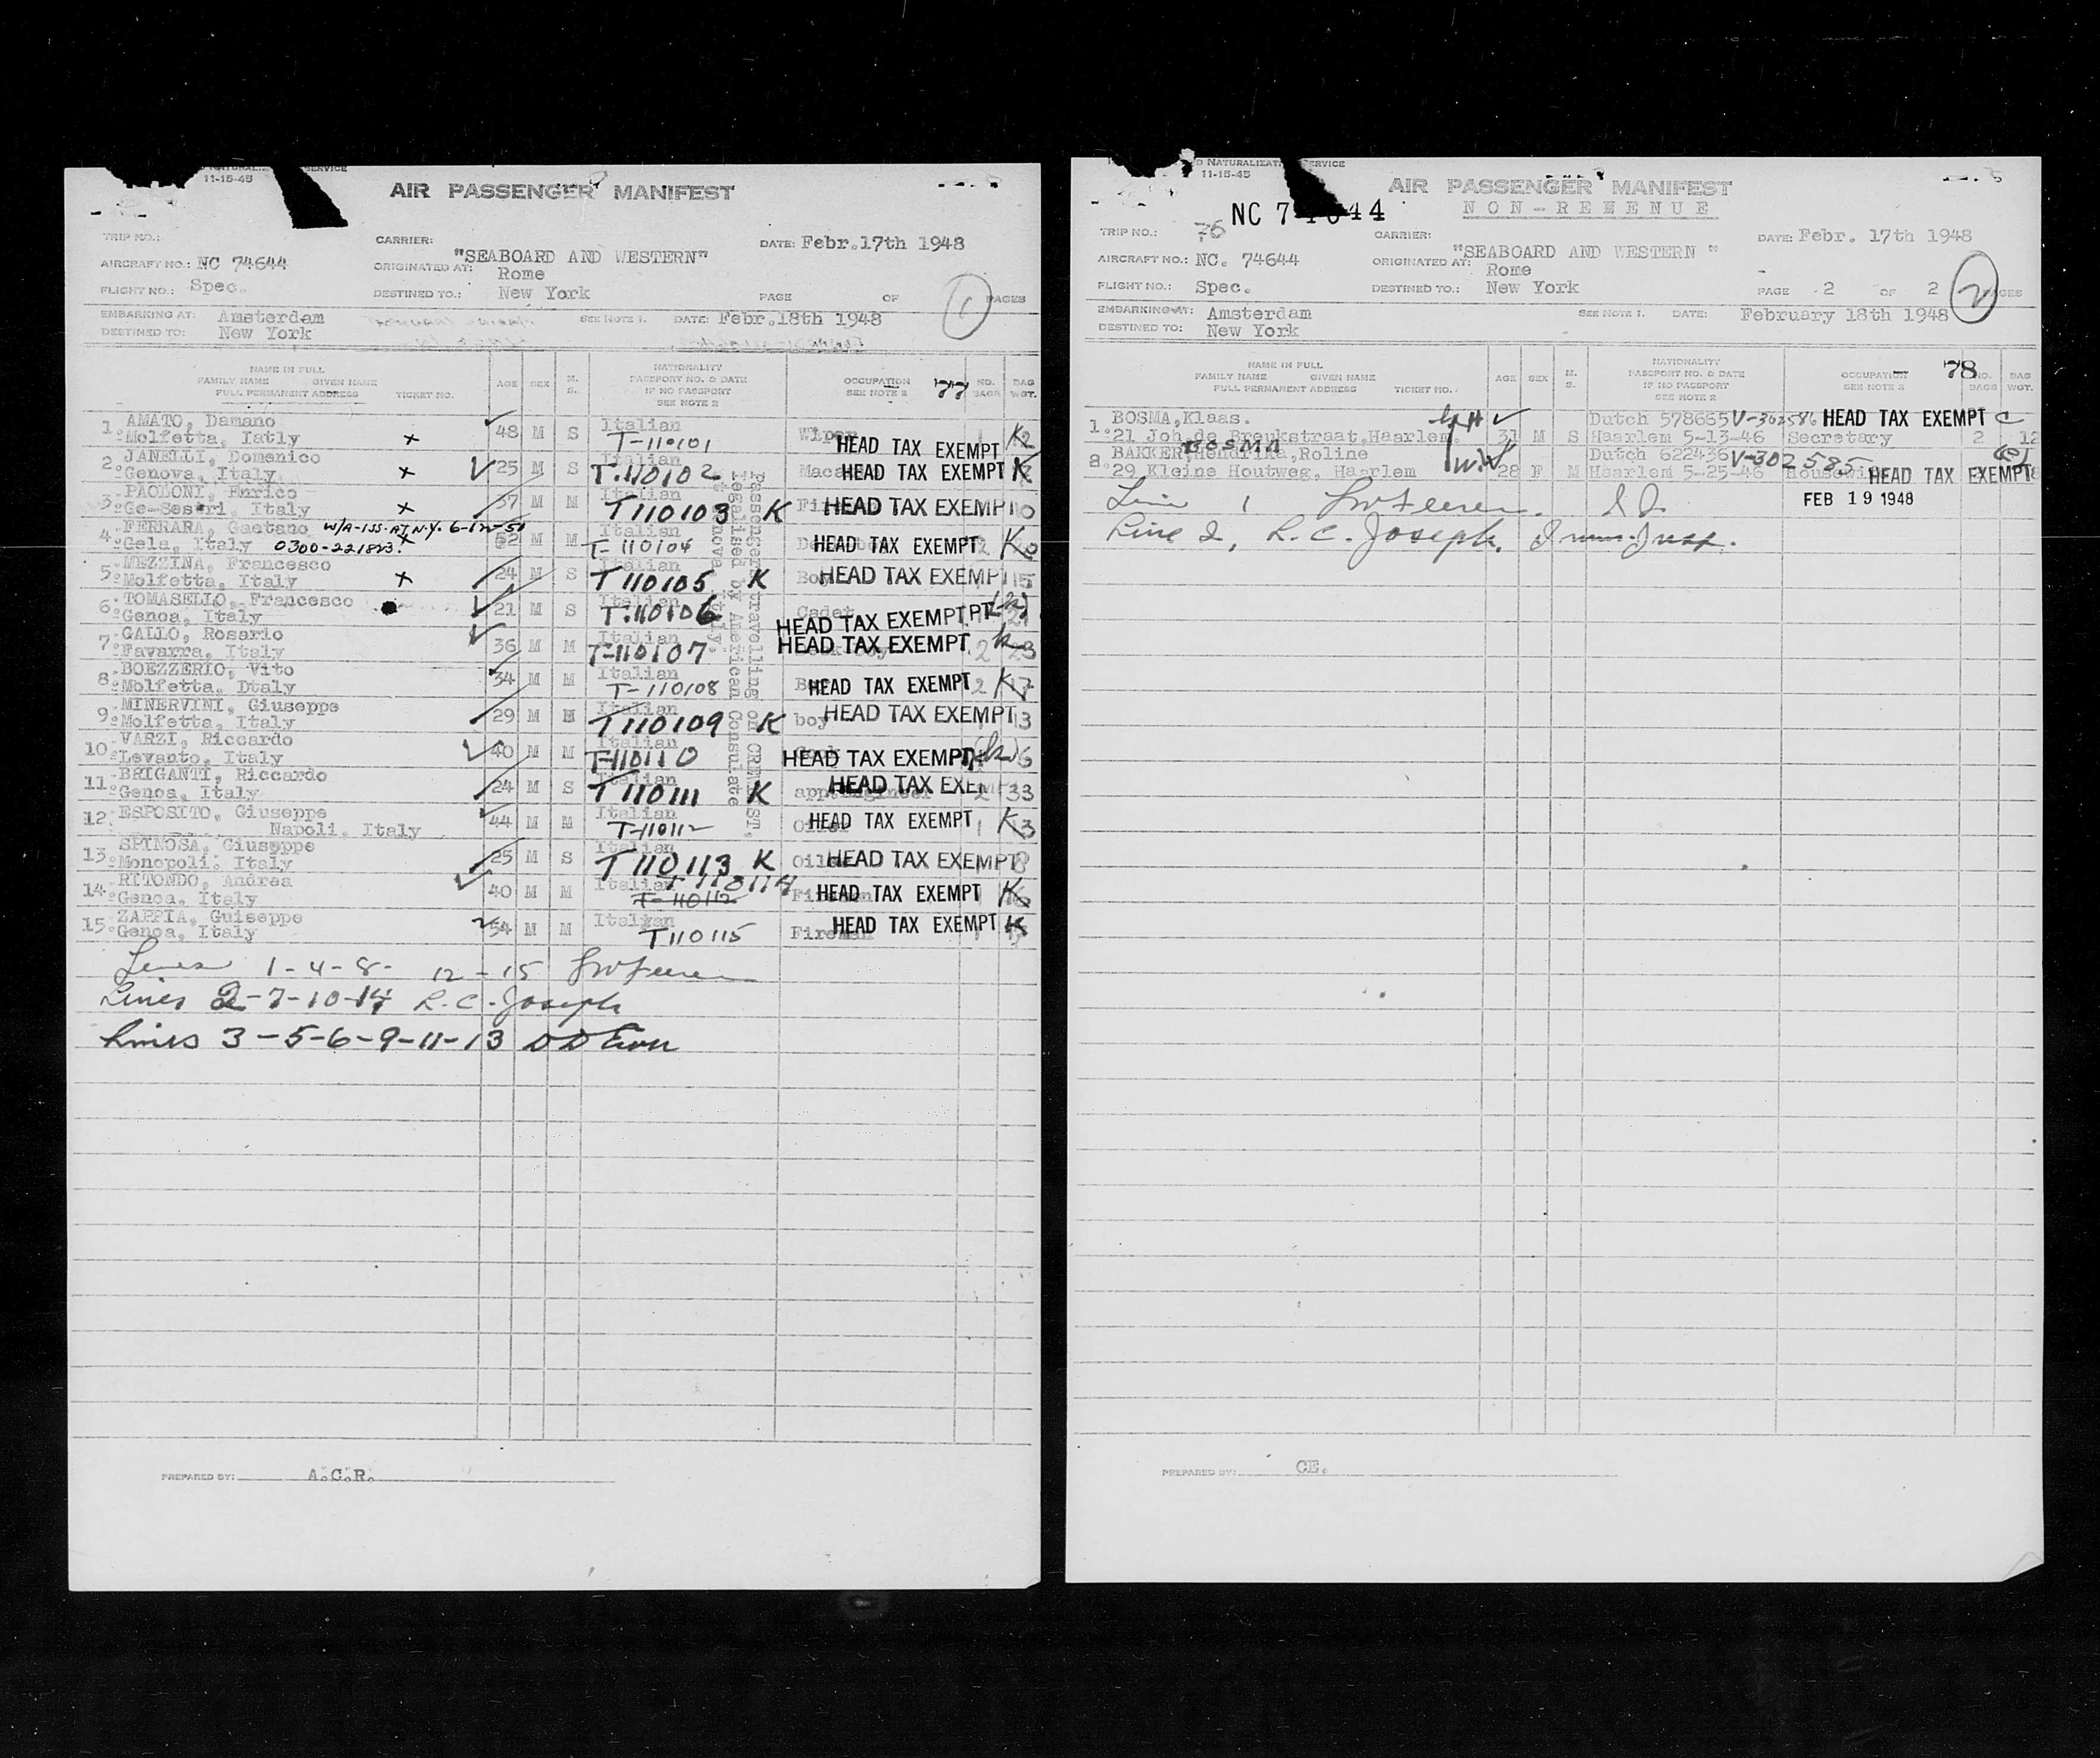 NATURALIZATION SERVICE
11-15-45
AIR PASSENGER MANIFEST
TRIP NO.:
CARRIER:
"SEABOARD AND WESTERN"
DATE: Febr.17th 1948
AIRCRAFT NO.: NC 74644
ORIGINATED AT: Rome
FLIGHT NO.: Spec.
DESTINED TO.: New York
PAGE 1 OF PAGES
EMBARKING AT: Amsterdam
SEE NOTE 1. DATE: Febr.18th 1948
DESTINED TO: New York
NAME IN FULL
FAMILY NAME GIVEN NAME
FULL PERMANENT ADDRESS TICKET NO.
AGE SEX M. S.
NATIONALITY
PASSPORT NO. & DATE
IF NO PASSPORT
SEE NOTE 2
OCCUPATION
SEE NOTE 2
77
NO. BAGS
BAG WGT.
1. AMATO, Damano 48 M S Italian Wiper
Molfetta, Iatly x T-110101 HEAD TAX EXEMPT K
2. JANELLI, Domenico 25 M S Italian
Genova, Italy x T-110102 HEAD TAX EXEMPT K
3. PAOLONI, Enrico 37 M M Italian
Ge-Sestri, Italy x T110103 K HEAD TAX EXEMPT
4. FERRARA, Gaetano W/A-ISS. AT N.Y. 6-12-50 52 M M Italian
Gela, Italy 0300-221823. x T-110104 HEAD TAX EXEMPT K
5. MEZZINA, Francesco 24 M S Italian
Molfetta, Italy x T110105 K Boy HEAD TAX EXEMPT 15
6. TOMASELLO, Francesco 21 M S Italian Cadet
Genoa, Italy T-110106 HEAD TAX EXEMPT
7. GALLO, Rosario 36 M M Italian
Favarra, Italy T-110107 HEAD TAX EXEMPT 2 K
8. BOEZZERIO, Vito 34 M M Italian
Molfetta. Dtaly T-110108 HEAD TAX EXEMPT 2 K
9. MINERVINI, Giuseppe 29 M M Italian
Molfetta, Italy T110109 K boy HEAD TAX EXEMPT 13
10. VARZI, Riccardo 40 M M Italian
Levanto, Italy T-110110 HEAD TAX EXEMPT (K)
11. BRIGANTI, Riccardo 24 M S Italian
Genoa, Italy T110111 K HEAD TAX EXEMPT 2 33
12. ESPOSITO, Giuseppe 44 M M Italian
Napoli. Italy T-110112 Oiler HEAD TAX EXEMPT 1 K
13. SPINOSA, Giuseppe 25 M S Italian
Monopoli. Italy T110113 K Oiler HEAD TAX EXEMPT 8
14. RITONDO, Andrea 40 M M Italian T110114
Genoa, Italy T-110112 Fireman HEAD TAX EXEMPT K
15. ZAPPIA, Guiseppe 54 M M Italian
Genoa, Italy T110115 Fireman HEAD TAX EXEMPT K
Passengers travelling on CREWLIST,
legalised by American Consulate
Genova, Italy.
Lines 1-4-8-12-15
Lines 2-7-10-14 R.C. Joseph
Lines 3-5-6-9-11-13
PREPARED BY: A.C.R.
NATURALIZATION SERVICE
11-15-45
AIR PASSENGER MANIFEST
NON-REMENUE
NC 74644
TRIP NO.: 76
CARRIER:
"SEABOARD AND WESTERN "
DATE: Febr. 17th 1948
AIRCRAFT NO.: NC. 74644
ORIGINATED AT: Rome
FLIGHT NO.: Spec.
DESTINED TO.: New York
PAGE 2 OF 2 PAGES
2
EMBARKING AT: Amsterdam
SEE NOTE 1. DATE: February 18th 1948
DESTINED TO: New York
NAME IN FULL
FAMILY NAME GIVEN NAME
FULL PERMANENT ADDRESS TICKET NO.
AGE SEX M. S.
NATIONALITY
PASSPORT NO. & DATE
IF NO PASSPORT
SEE NOTE 2
OCCUPATION
SEE NOTE 2
78
NO. BAGS
BAG WGT.
1. BOSMA,Klaas. Dutch 578665 V-302586 HEAD TAX EXEMPT C
21 Joh.de Breukstraat,Haarlem. 31 M S Haarlem 5-13-46 Secretary 2 12
BOSMA
BAKKER,Hendrika,Roline Dutch 622436 V-302585
29 Kleine Houtweg, Haarlem wife 28 F M Haarlem 5-25-46 Housewife HEAD TAX EXEMPT
FEB 19 1948
Line 1
Line 2, R.C. Joseph, Imm. Insp.
PREPARED BY: CE.